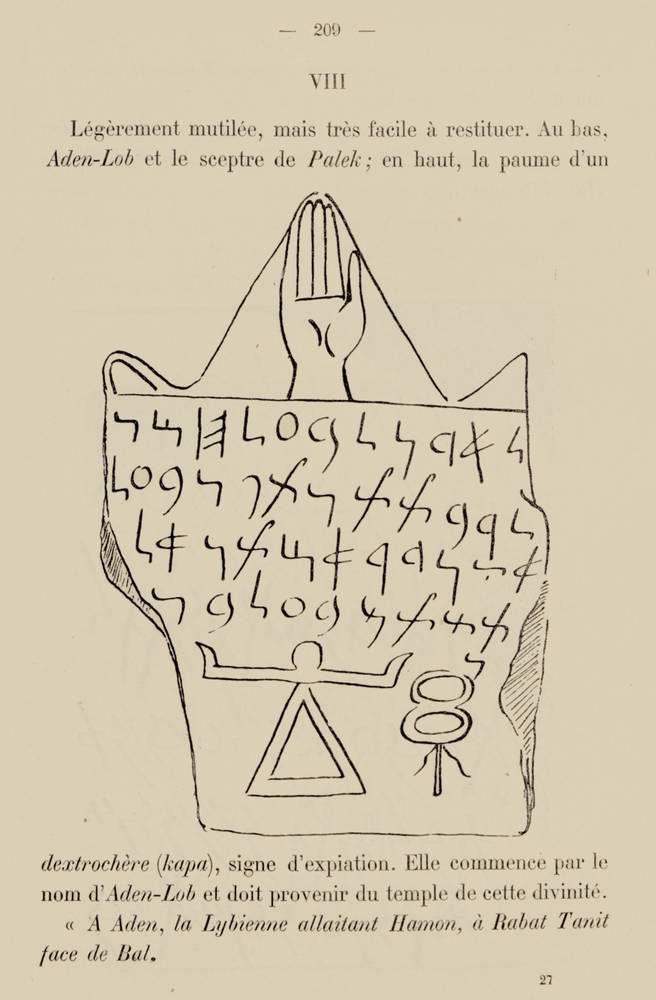 — 209 —
VIII
Légèrement mutilée, mais très facile à restituer. Au bas,
Aden-Lob et le sceptre de Palek; en haut, la paume d'un
𐤋𐤀𐤃𐤍𐤋𐤁𐤏𐤋𐤇𐤌𐤍
𐤋𐤓𐤁𐤕𐤕𐤍𐤕𐤐𐤍𐤁𐤏𐤋
dextrochère (kapa), signe d'expiation. Elle commence par le
nom d'Aden-Lob et doit provenir du temple de cette divinité.
« A Aden, la Lybienne allaitant Hamon, à Rabat Tanit
face de Bal.
27